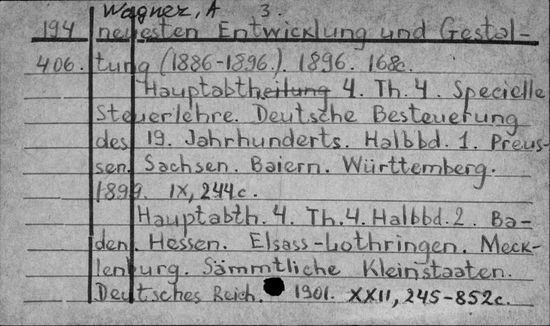 Wagner, A 3.
194 neuesten Entwicklung und Gestal-
406. tung (1886-1896.). 1896. 168c.
Hauptabtheilung 4. Th. 4. Specielle
Steuerlehre. Deutsche Besteuerung
des 19. Jahrhunderts. Halbbd. 1. Preus-
sen. Sachsen. Baiern. Württemberg.
1899. IX, 244c.
Hauptabth. 4. Th. 4. Halbbd. 2. Ba-
den. Hessen. Elsass-Lothringen. Meck-
lenburg. Sämmtliche Kleinstaaten.
Deutsches Reich. 1901. XXII, 245-852c.